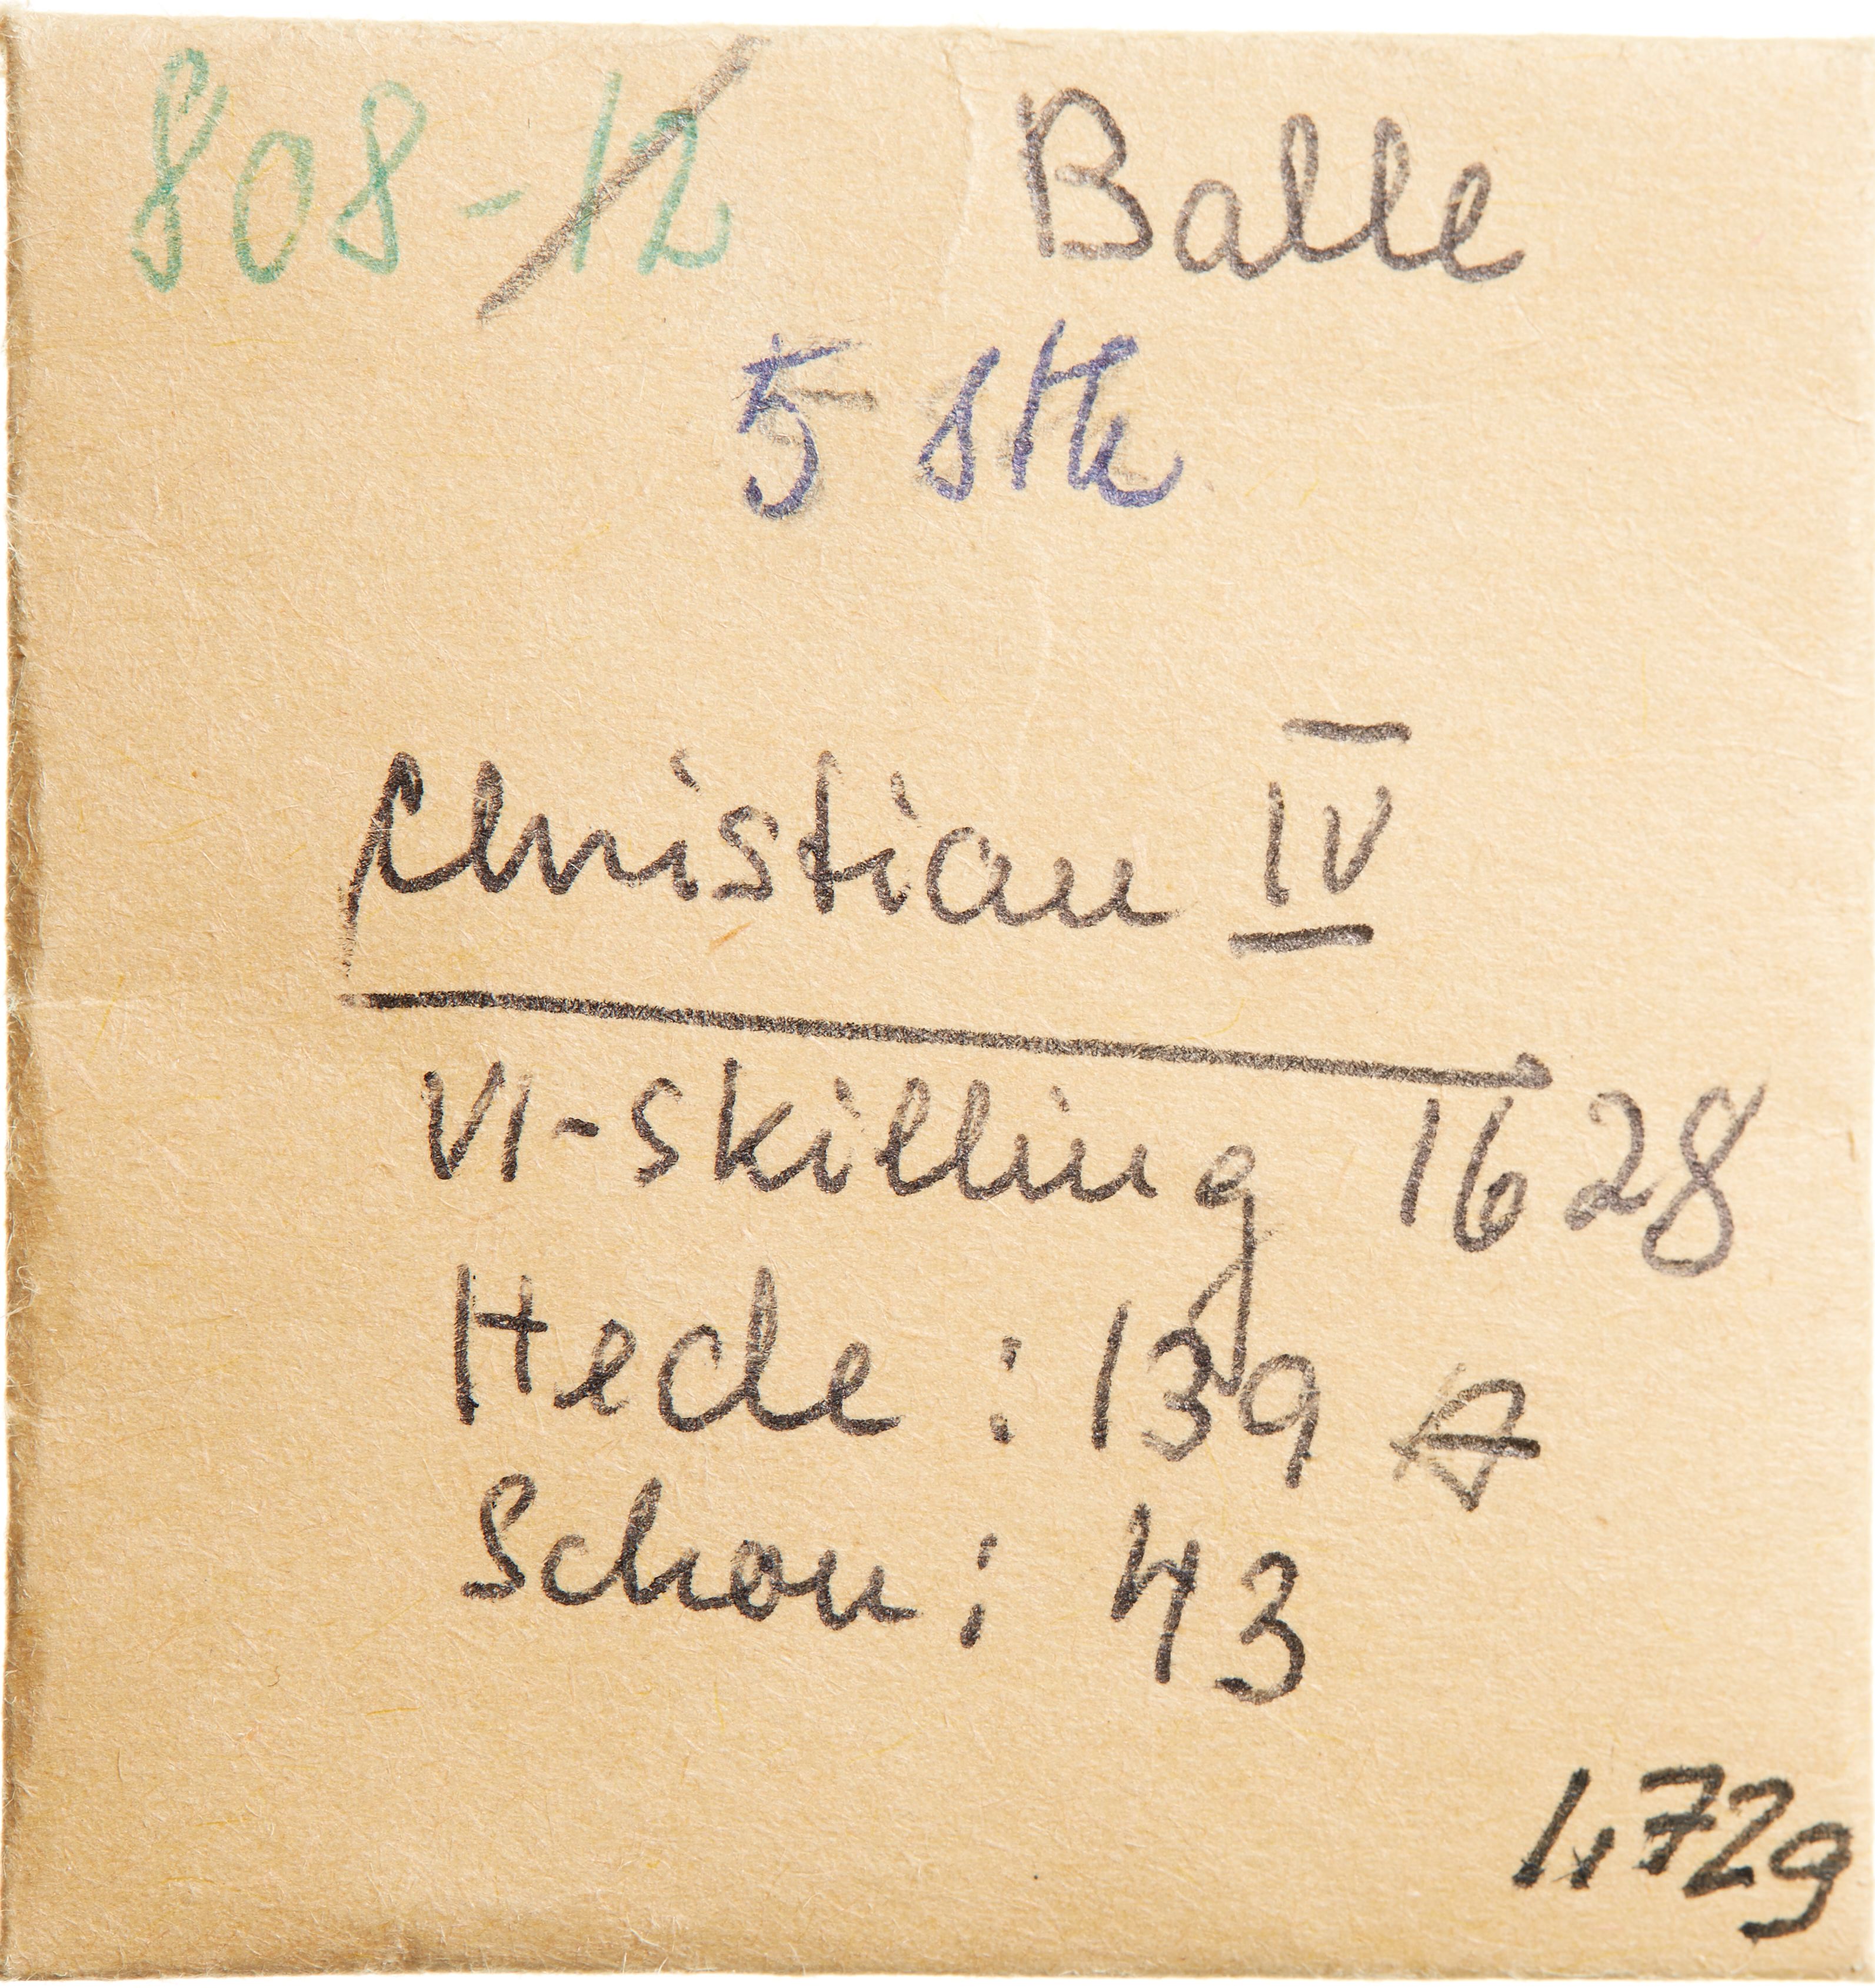 808-12 Balle
5 stk
Christian IV
VI-skilling 1628
Hede: 139 A
Schou: 43
1,72g